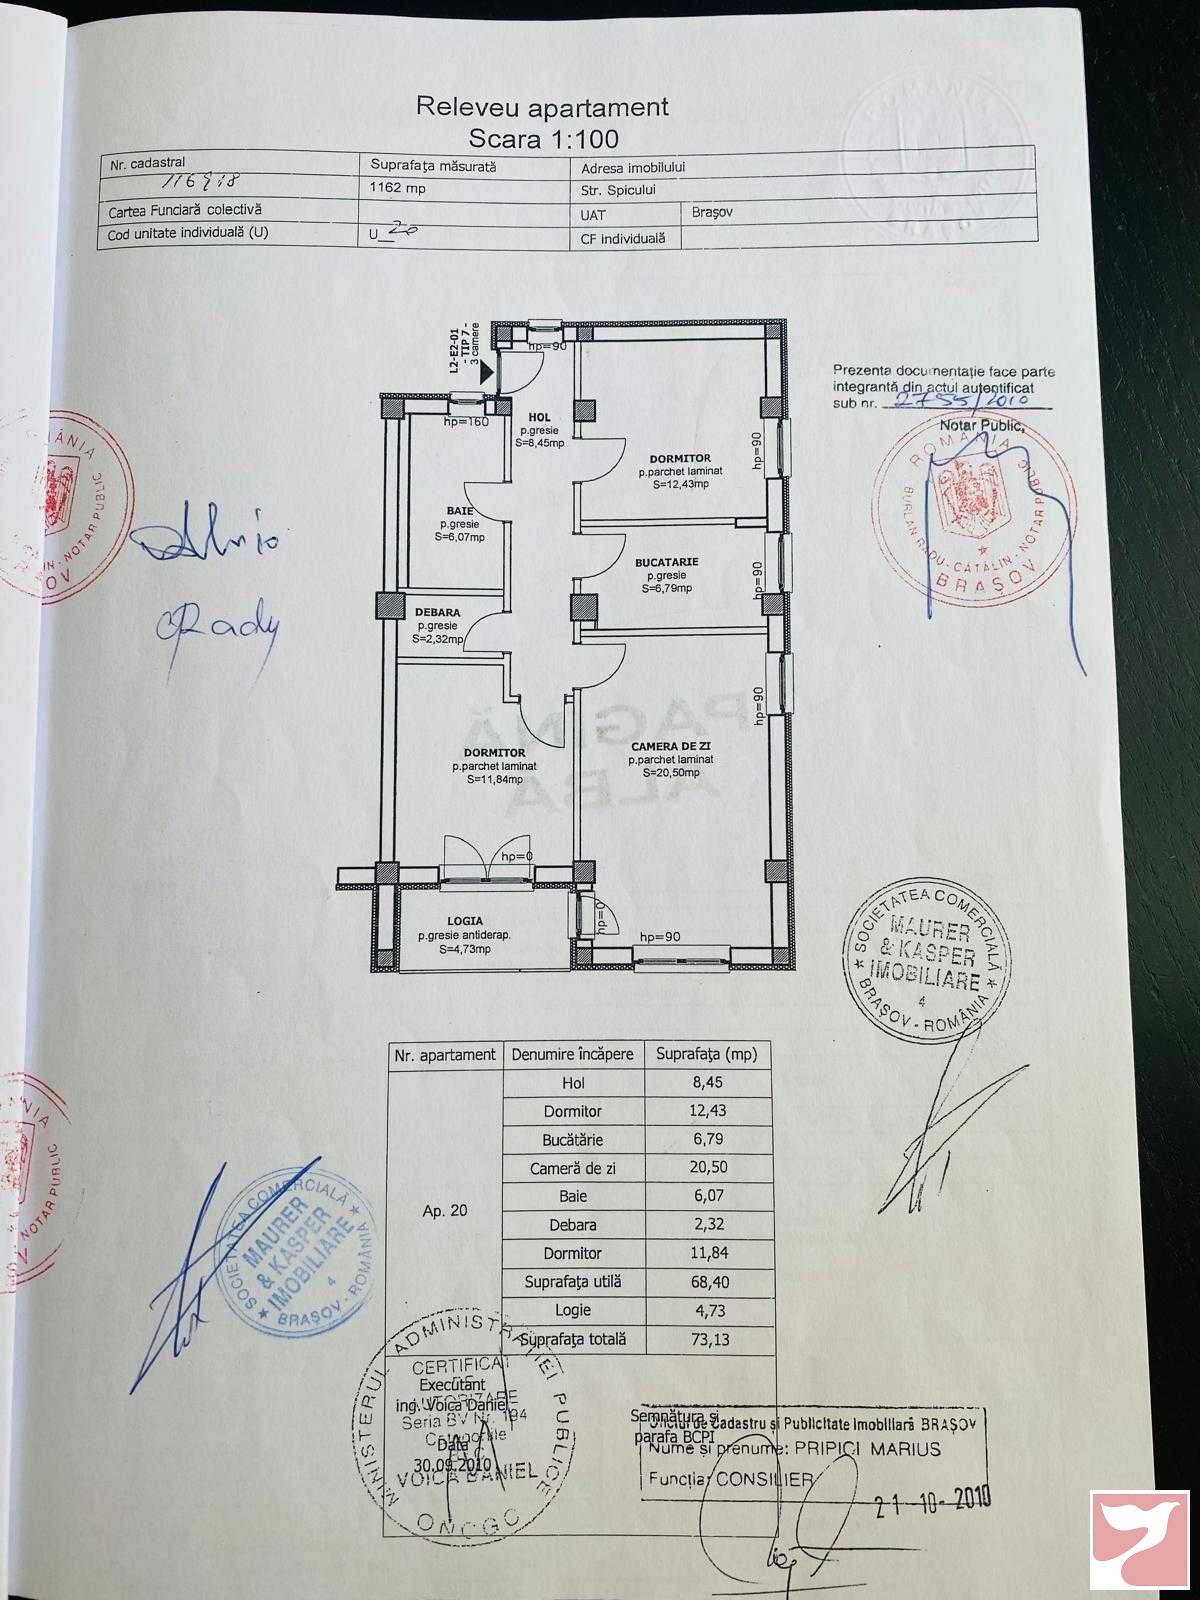 Releveu apartament
Scara 1:100
Nr. cadastral
Suprafaţa măsurată
Adresa imobilului
116918
1162 mp
Str. Spicului
Cartea Funciară colectivă
UAT
Braşov
Cod unitate individuală (U)
U_20
CF individuală
L2-E2-01
- TIP 7 -
3 camere
hp=90
hp=160
HOL
p.gresie
S=8,45mp
DORMITOR
p.parchet laminat
S=12,43mp
hp=90
BAIE
p.gresie
S=6,07mp
BUCATARIE
p.gresie
S=6,79mp
hp=90
DEBARA
p.gresie
S=2,32mp
hp=90
DORMITOR
p.parchet laminat
S=11,84mp
CAMERA DE ZI
p.parchet laminat
S=20,50mp
hp=0
LOGIA
p.gresie antiderap.
S=4,73mp
hp=0
hp=90
Prezenta documentaţie face parte
integrantă din actul autentificat
sub nr. 2755/2010
Notar Public,
ROMÂNIA
BURLAN RADU-CĂTĂLIN - NOTAR PUBLIC
BRAŞOV
NOTAR PUBLIC
Rady
PAGINĂ
ALBĂ
SOCIETATEA COMERCIALĂ
MAURER
& KASPER
IMOBILIARE
4
BRAŞOV - ROMÂNIA
Nr. apartament
Denumire încăpere
Suprafaţa (mp)
Ap. 20
Hol
8,45
Dormitor
12,43
Bucătărie
6,79
Cameră de zi
20,50
Baie
6,07
Debara
2,32
Dormitor
11,84
Suprafaţa utilă
68,40
Logie
4,73
Suprafaţa totală
73,13
NOTAR PUBLIC
SOCIETATEA COMERCIALĂ
MAURER
& KASPER
IMOBILIARE
4
BRAŞOV - ROMÂNIA
MINISTERUL ADMINISTRAŢIEI PUBLICE
CERTIFICAT
DE
AUTORIZARE
Seria BV Nr. 194
VOICA DANIEL
ONCGC
Executant
ing. Voica Daniel
Data
30.09.2010
Semnătura şi
parafa BCPI
Oficiul de Cadastru şi Publicitate Imobiliară BRAŞOV
Nume şi prenume: PRIPICI MARIUS
Funcţia: CONSILIER
21-10-2010